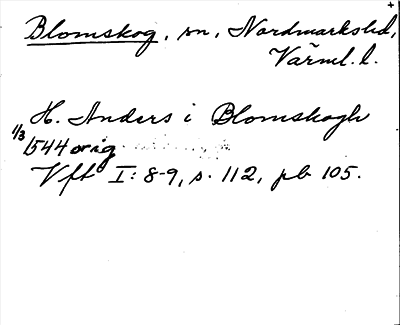 Blomskog, sn, Nordmarks hd,
Värml. l.
H. Anders i Blomskogh
1/3 1544 orig.
Vfl I: 8-9, s. 112, pb 105.